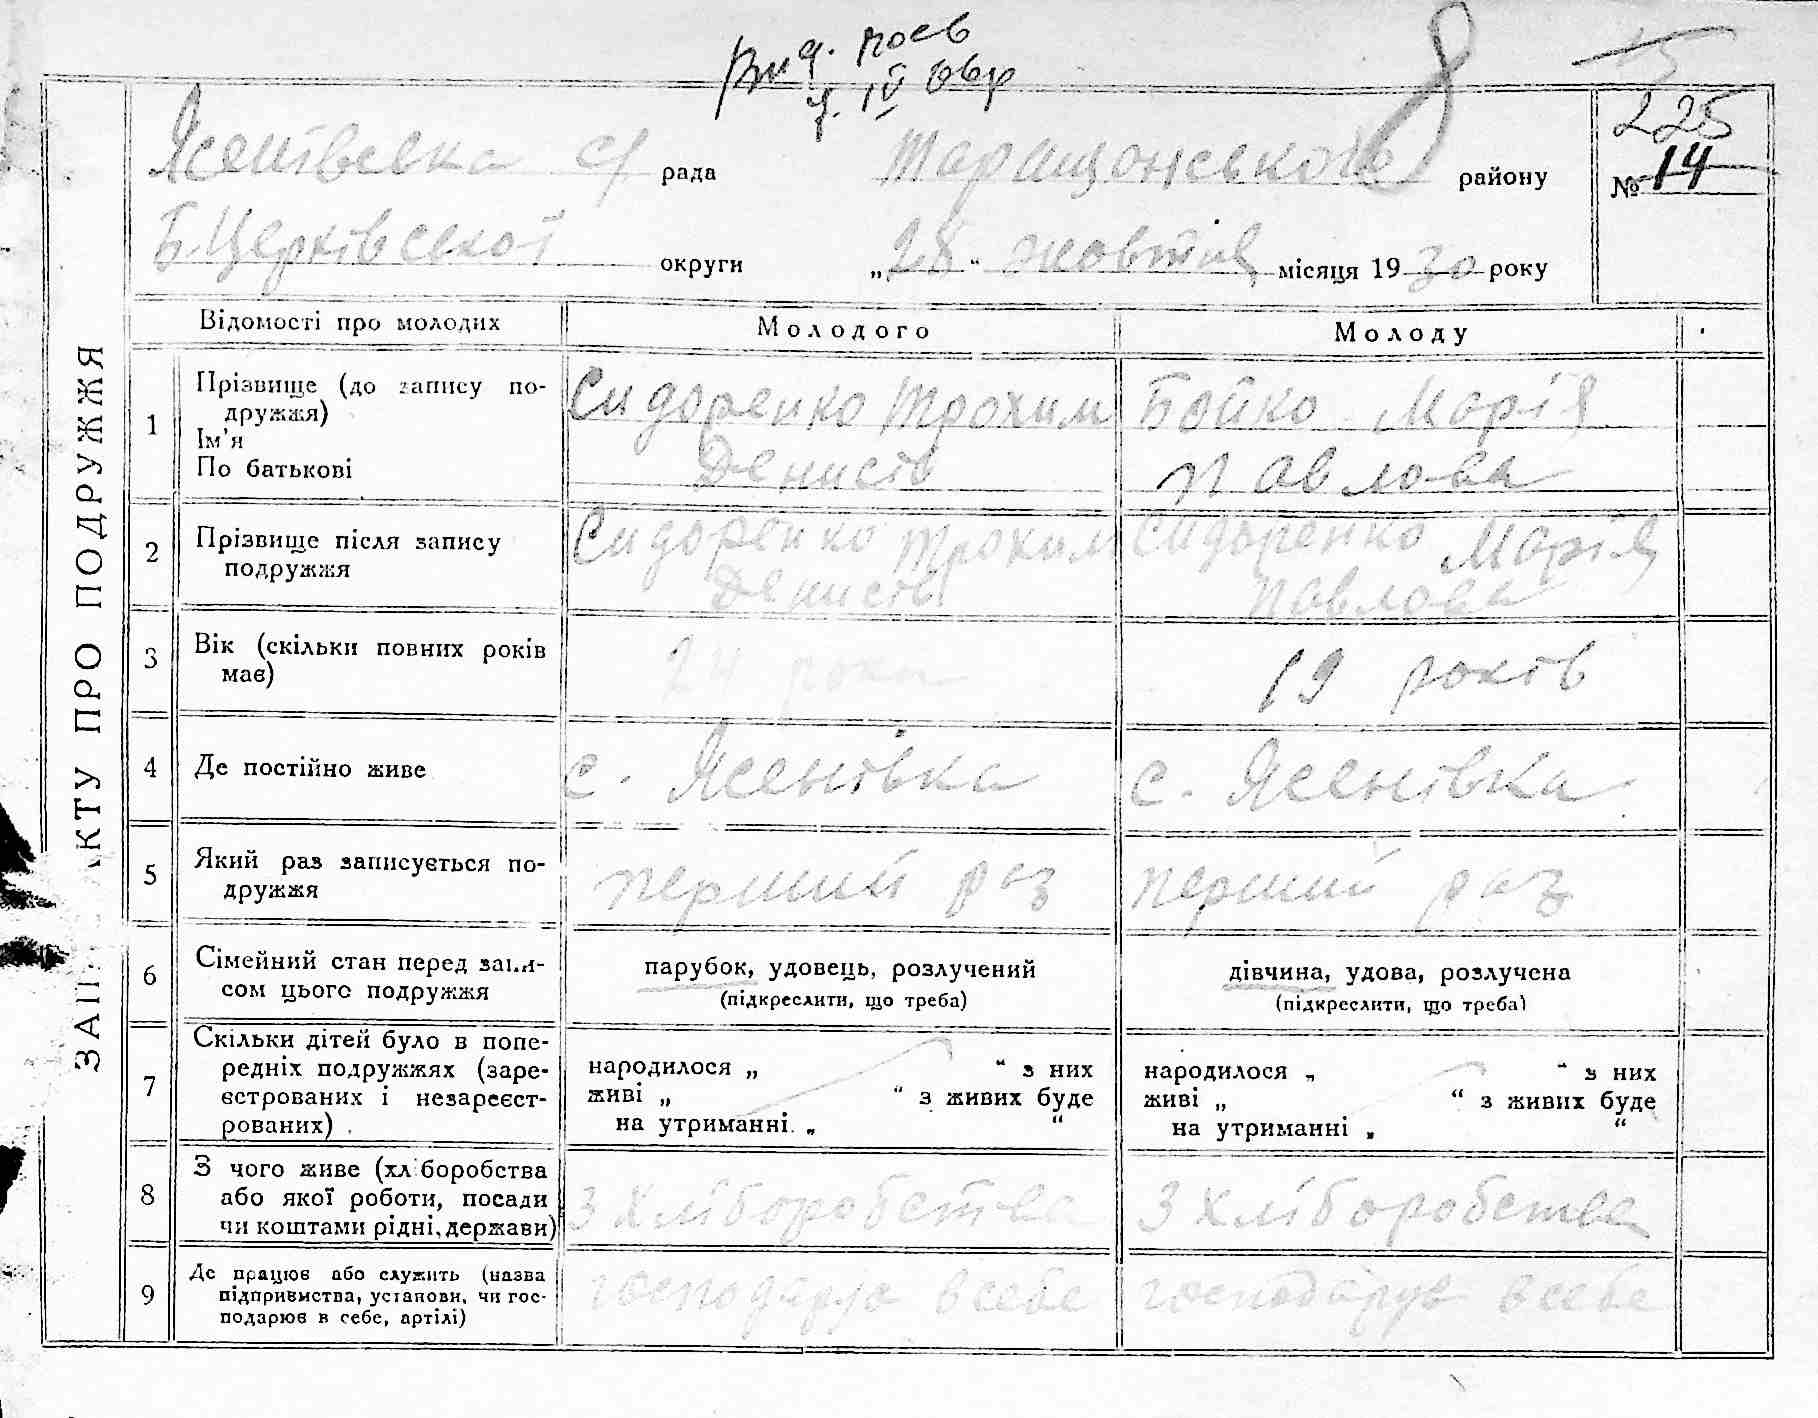 ЗАПИС АКТУ ПРО ПОДРУЖЖЯ
225
Ясенівська с/ рада Таращанського району № 14
Б.Церківської округи „28“ жовтня місяця 1930 року
Відомості про молодих Молодого Молоду
1 Прізвище (до запису по-
дружжя)
Ім'я
По батькові
Сидоренко Трохим
Денисів
Бойко Марія
Павлова
2 Прізвище після запису
подружжя
Сидоренко Трохим
Денисів
Сидоренко Марія
Павлова
3 Вік (скільки повних років
має)
24 роки
19 років
4 Де постійно живе
с. Ясенівка
с. Ясенівка
5 Який раз записується по-
дружжя
перший раз
перший раз
6 Сімейний стан перед запи-
сом цього подружжя
парубок, удовець, розлучений
(підкреслити, що треба)
дівчина, удова, розлучена
(підкреслити, що треба)
7 Скільки дітей було в попе-
редніх подружжях (заре-
єстрованих і незареєст-
рованих)
народилося „ “ з них
живі „ “ з живих буде
на утриманні „ “
народилося „ “ з них
живі „ “ з живих буде
на утриманні „ “
8 З чого живе (хліборобства
або якої роботи, посади
чи коштами рідні, держави)
з хліборобства
з хліборобства
9 Де працює або служить (назва
підприємства, установи, чи гос-
подарює в себе, артілі)
господарює в себе
господарює в себе